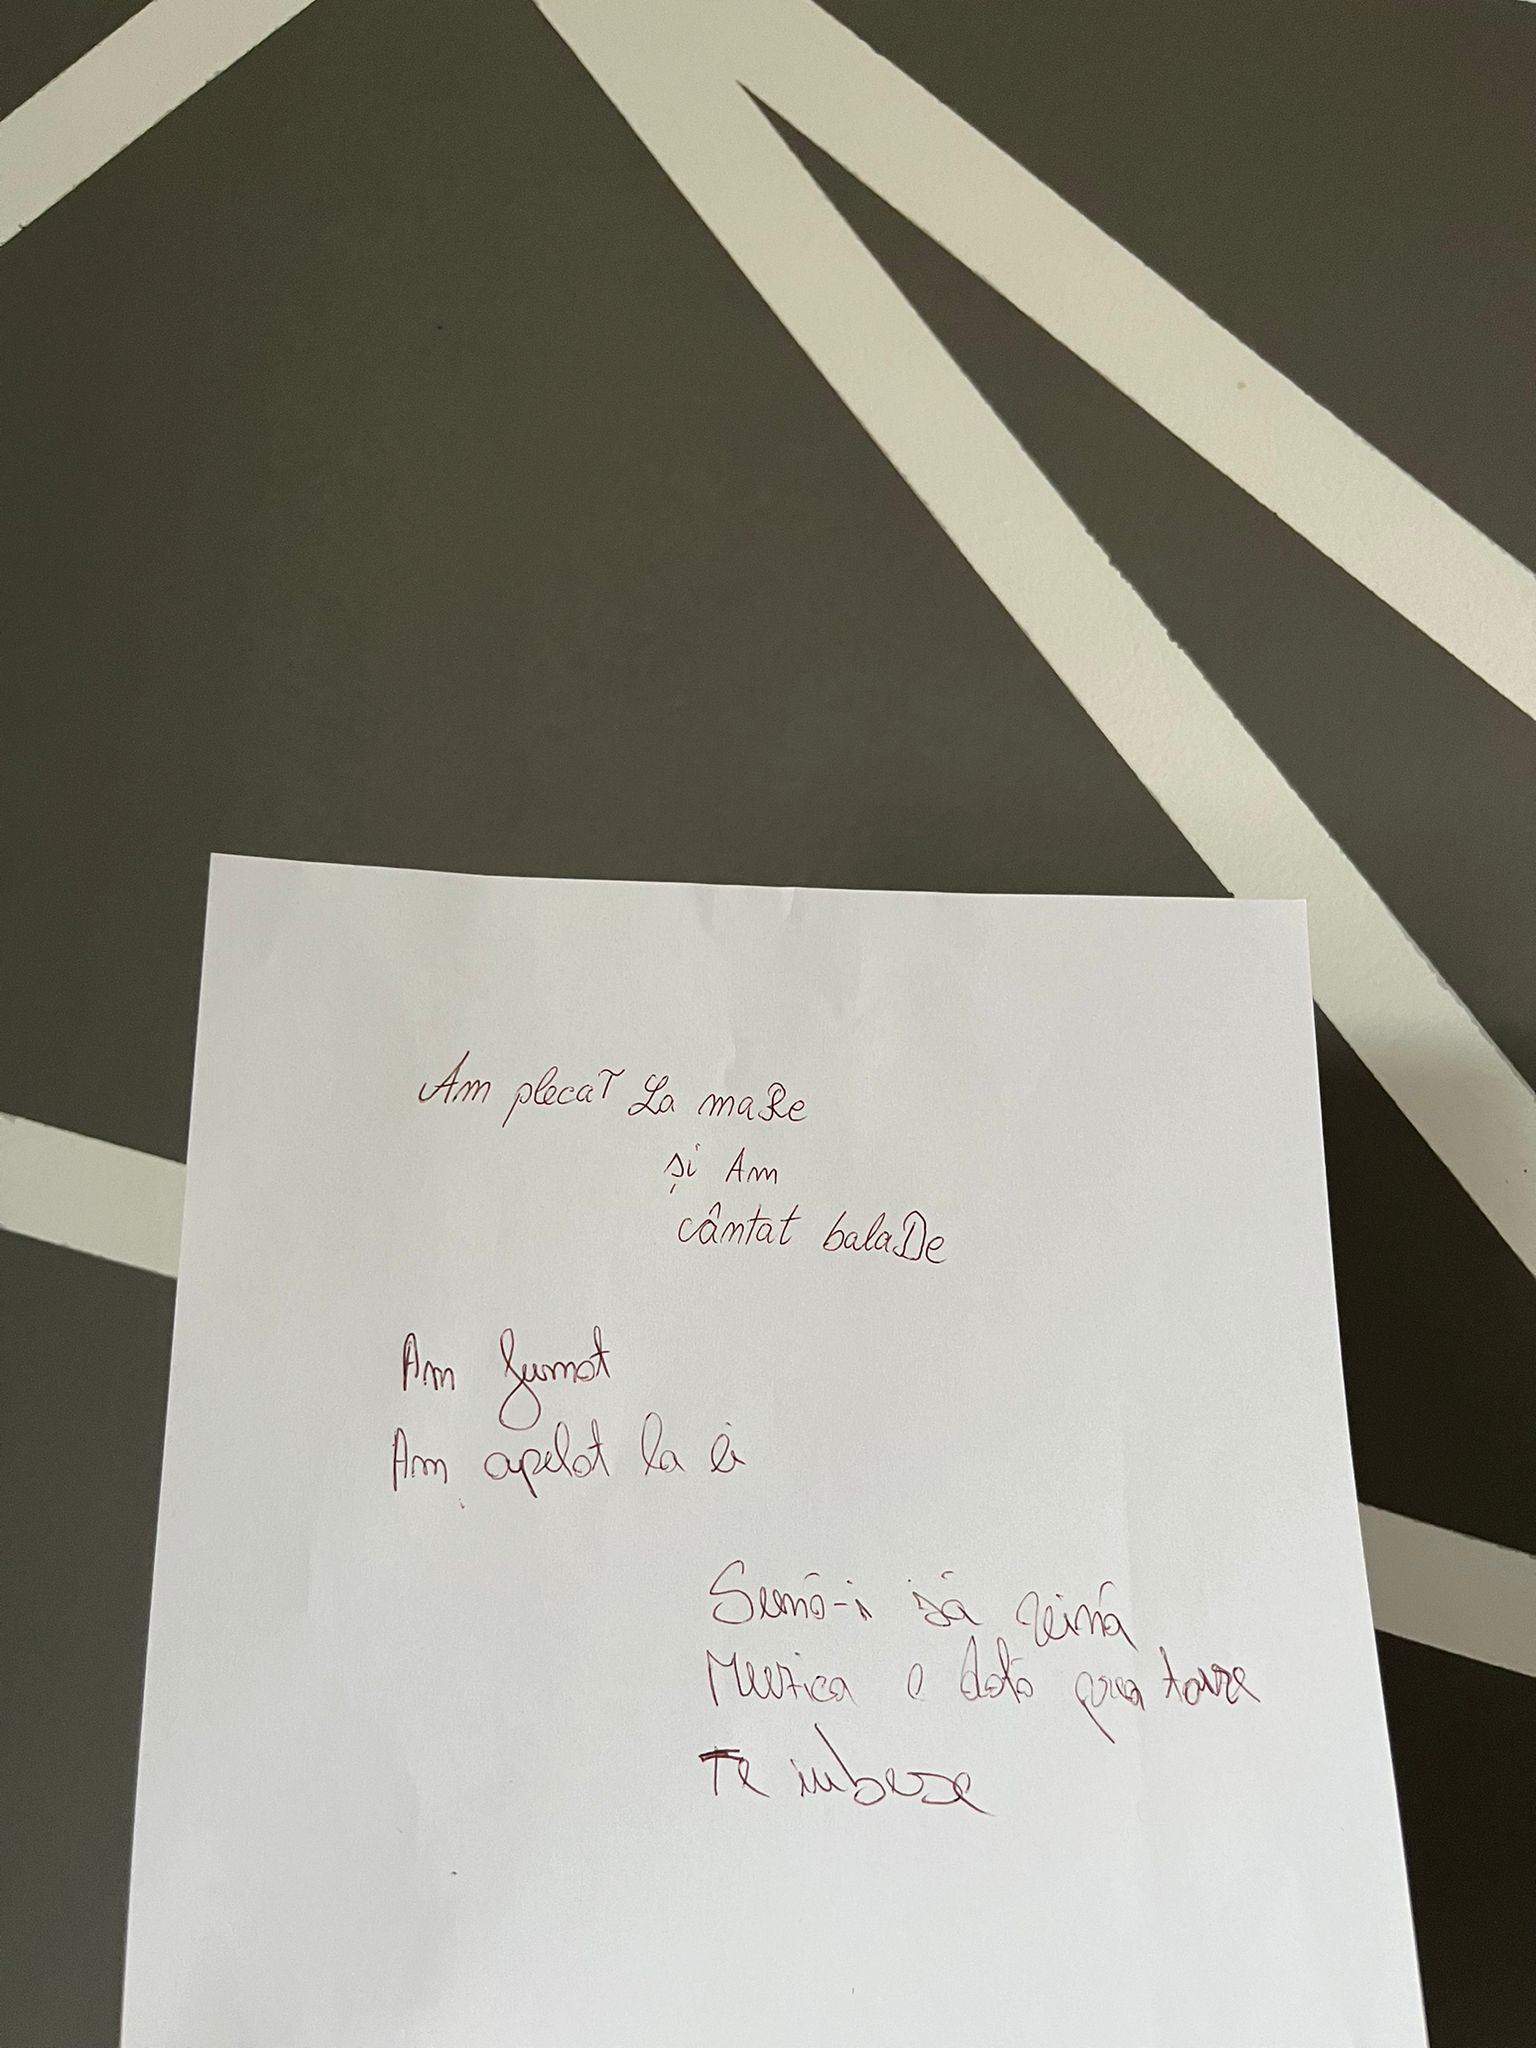 Am plecaT La maRe
și Am
cântat balaDe
Am fumat
Am apelat la ei
Sună-i să vină
Muzica e dată prea tare
Te iubesc